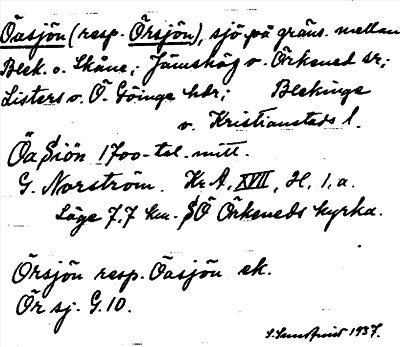 Öasjön (resp. Örsjön), sjö på gräns. mellan
Blek. o. Skåne; Jämshög o. Örkened sr;
Listers o. Ö. Göinge hdr; Blekinge
o. Kristianstads l.
Öa Siön 1700-tal. mitt.
G. Norström. Kr. A, XVII, H, 1, a.
Läge 7,7 km. SÖ Örkeneds kyrka.
Örsjön resp. Öasjön ek.
Ör sj. G. 10.
1937.